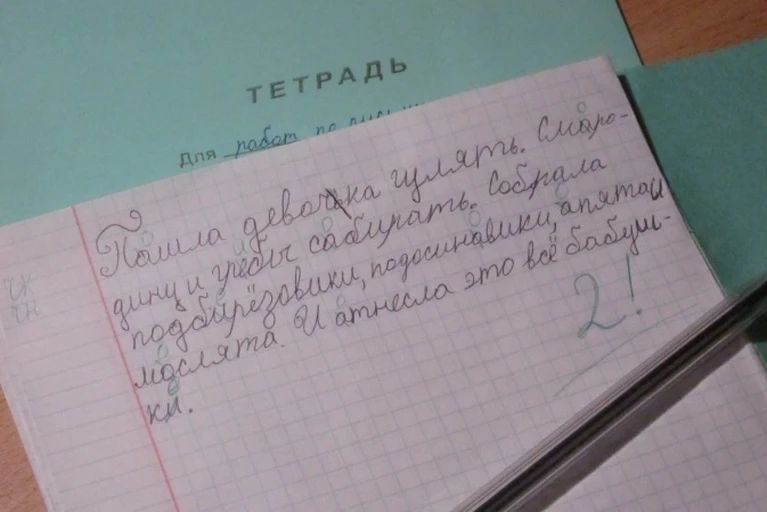 ТЕТРАДЬ
Для работ по
Пашла девочка гулять. Сморо-
дину и гребы сабирать. Собрала
подбирёзовики, подосиновики, апятаи
мослята. И атнесла это всё бабуш-
ки.
чк
чн
2!